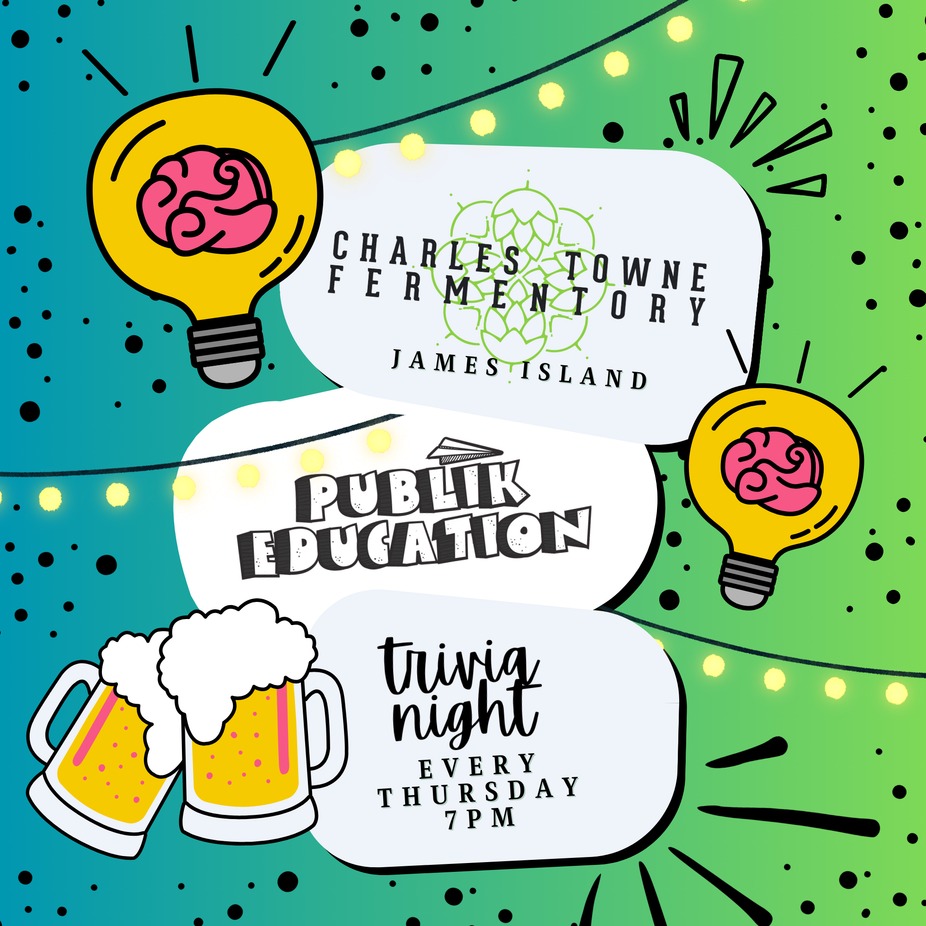 CHARLES TOWNE
FERMENTORY
JAMES ISLAND
PUBLIK
EDUCATION
trivia
night
EVERY
THURSDAY
7PM